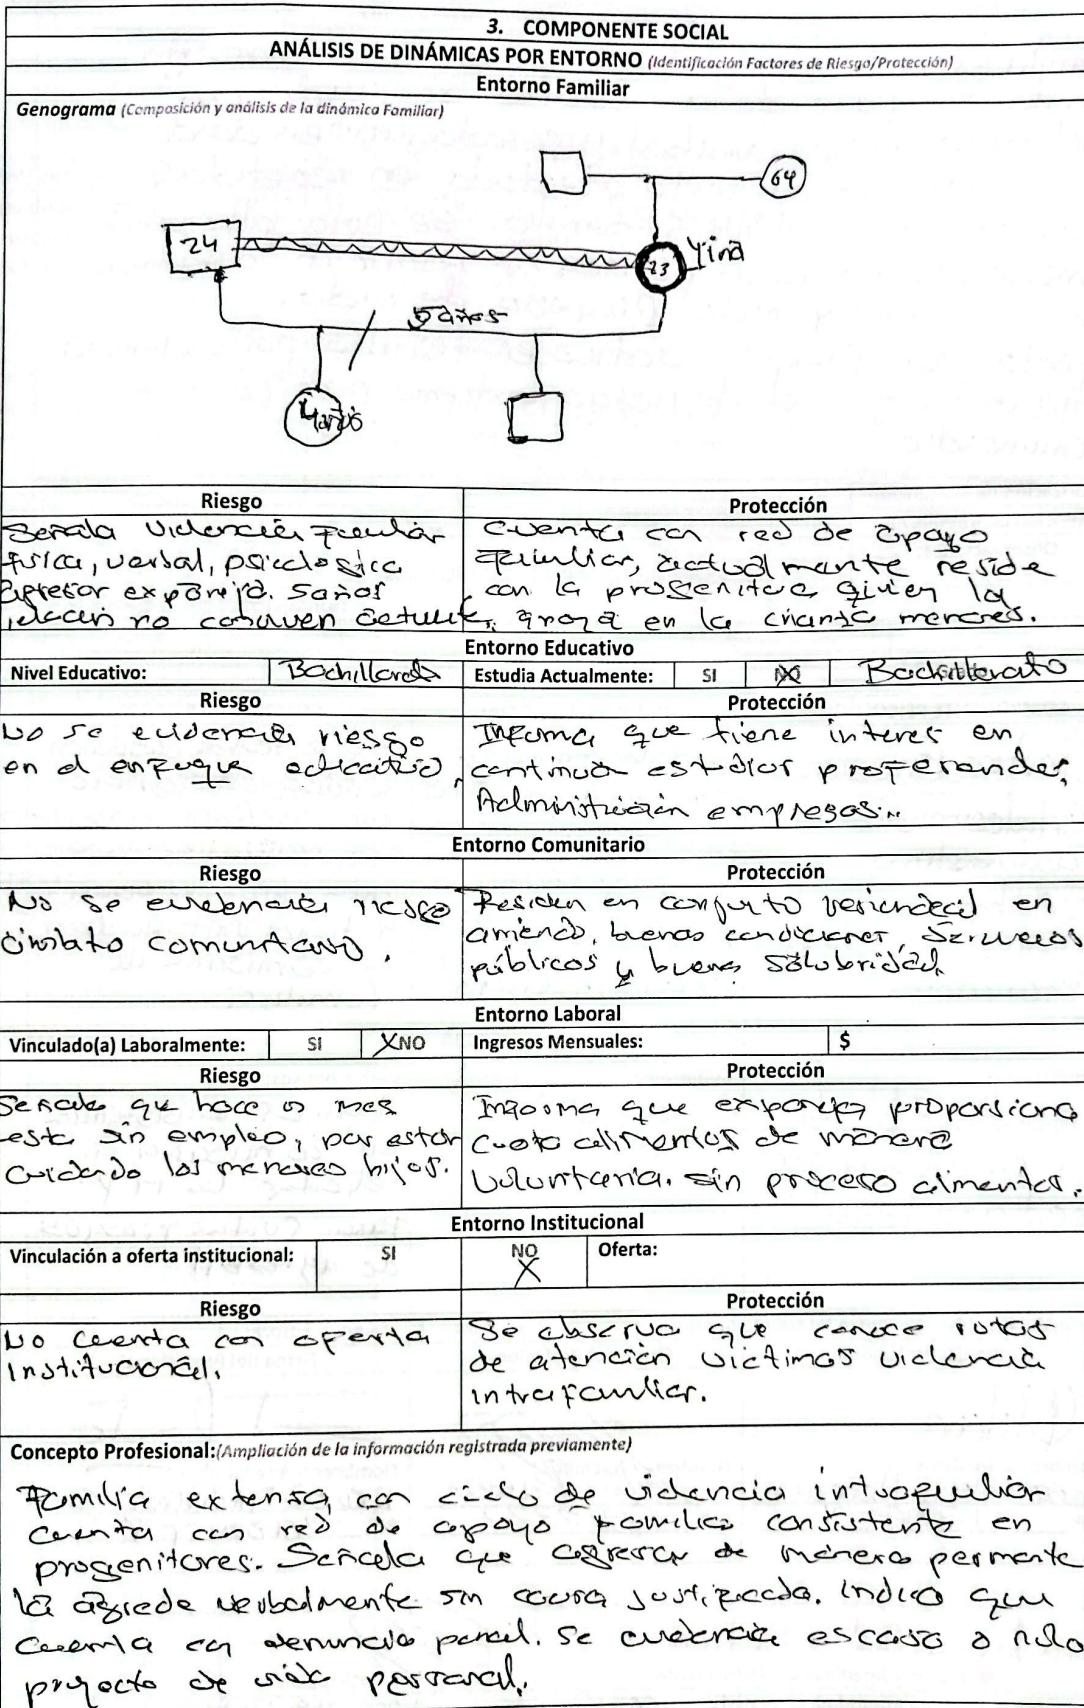 3. COMPONENTE SOCIAL
ANÁLISIS DE DINÁMICAS POR ENTORNO (Identificación Factores de Riesgo/Protección)
Entorno Familiar
Genograma (Composición y análisis de la dinámica Familiar)
64
24
23 Yina
5 años
4 años
Riesgo
Protección
Señala violencia familiar
física, verbal, psicologica
agresor expareja. 5 años
relación no conviven
Cuenta con red de apoyo
familiar, actualmente reside
con la progenitora quien la
apoya en la crianza menores.
Entorno Educativo
Nivel Educativo: Bachillerato Estudia Actualmente: SI NO Bachillerato
Riesgo
Protección
No se evidencia riesgo
en el enfoque educativo.
Informa que tiene interes en
continuar estudios
Administración empresas..
Entorno Comunitario
Riesgo
Protección
No se evidencia riesgo
ámbito comunitario.
Residen en conjunto en
arriendo, buenas condiciones, servicios
públicos y buena salubridad.
Entorno Laboral
Vinculado(a) Laboralmente: SI X NO Ingresos Mensuales: $
Riesgo
Protección
Señala que hace mes
esta sin empleo, por estar
cuidando los menores hijos.
Informa que expareja proporciona
cuota alimentos de manera
voluntaria. sin proceso alimentos.
Entorno Institucional
Vinculación a oferta institucional: SI NO X Oferta:
Riesgo
Protección
No cuenta con oferta
Institucional.
Se observa que conoce rutas
de atención victimas violencia
intrafamiliar.
Concepto Profesional:(Ampliación de la información registrada previamente)
Familia extensa, con ciclo de violencia intrafamiliar
cuenta con red de apoyo familiar consistente en
progenitores. Señala que agresor de manera permante
la agrede verbalmente sin causa justificada. Indica que
cuenta con denuncia penal. se evidencia escaso o nulo
proyecto de vida personal.